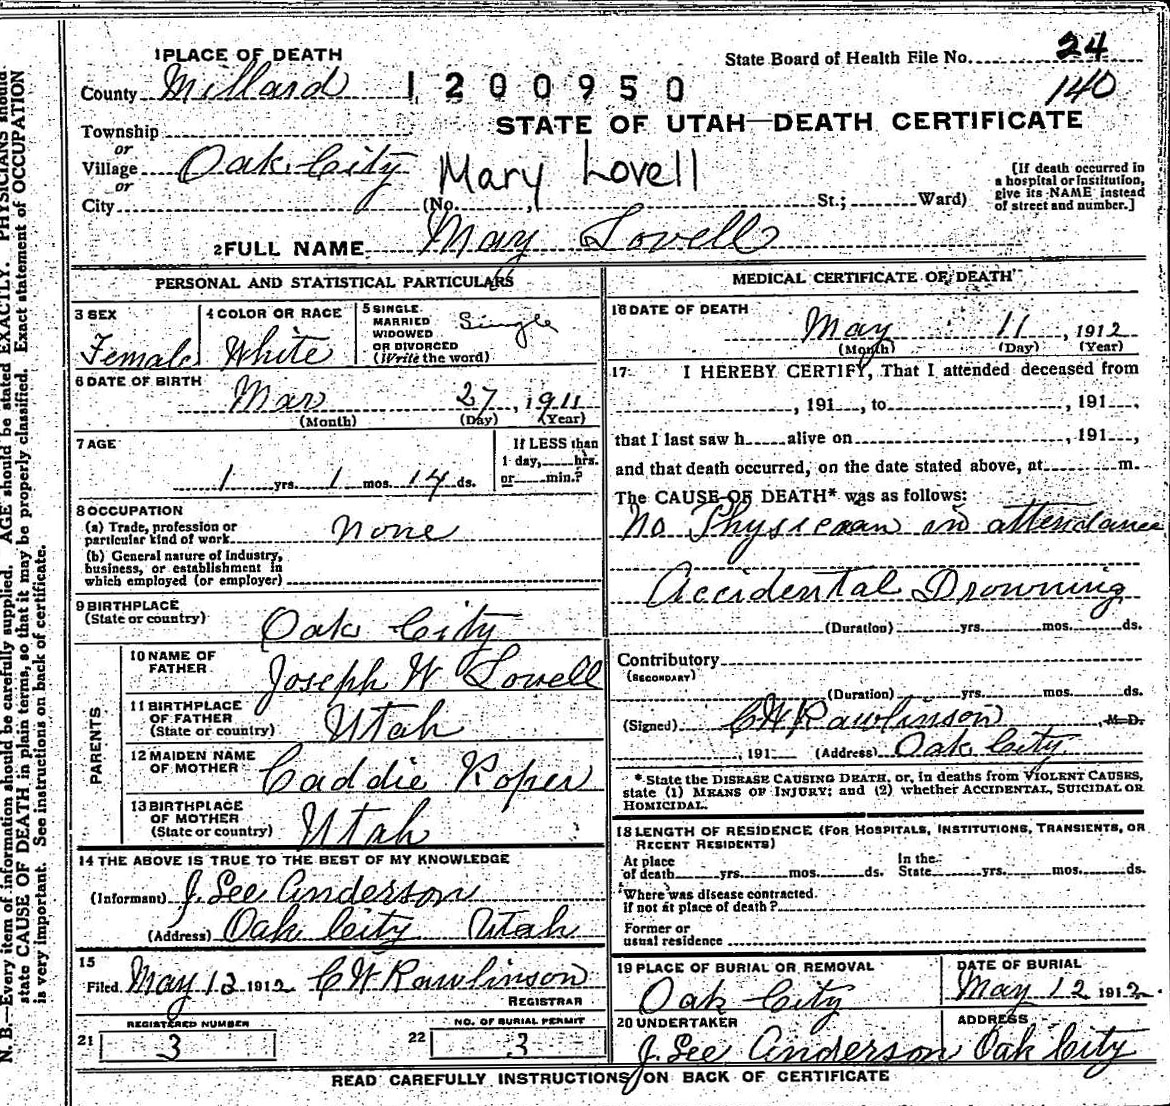 1 PLACE OF DEATH
State Board of Health File No. 24
140
County Millard
1200950
STATE OF UTAH—DEATH CERTIFICATE
Township
or
Village Oak City
Mary Lovell
or
City (No. , St.; Ward)
[If death occurred in
a hospital or institution,
give its NAME instead
of street and number.]
2 FULL NAME May Lovell
PERSONAL AND STATISTICAL PARTICULARS
3 SEX
Female
4 COLOR OR RACE
White
5 SINGLE,
MARRIED
WIDOWED
OR DIVORCED
(Write the word)
Single
6 DATE OF BIRTH
Mar 27, 1911
(Month) (Day) (Year)
7 AGE
1 yrs. 1 mos. 14 ds.
If LESS than
1 day, hrs.
or min.?
8 OCCUPATION
(a) Trade, profession or
particular kind of work none
(b) General nature of industry,
business, or establishment in
which employed (or employer)
9 BIRTHPLACE
(State or country)
Oak City
PARENTS
10 NAME OF
FATHER
Joseph W Lovell
11 BIRTHPLACE
OF FATHER
(State or country)
Utah
12 MAIDEN NAME
OF MOTHER
Caddie Roper
13 BIRTHPLACE
OF MOTHER
(State or country)
Utah
14 THE ABOVE IS TRUE TO THE BEST OF MY KNOWLEDGE
(Informant) J. Lee Anderson
(Address) Oak City Utah
15
Filed May 12 1912 C H Rawlinson
REGISTRAR
21 REGISTERED NUMBER
3
22 NO. OF BURIAL PERMIT
3
MEDICAL CERTIFICATE OF DEATH
16 DATE OF DEATH
May 11, 1912
(Month) (Day) (Year)
17 I HEREBY CERTIFY, That I attended deceased from
, 191 , to , 191 ,
that I last saw h alive on , 191 ,
and that death occurred, on the date stated above, at m.
The CAUSE OF DEATH* was as follows:
No Physician in attendance
Accidental Drowning
(Duration) yrs. mos. ds.
Contributory
(SECONDARY)
(Duration) yrs. mos. ds.
(Signed) C H Rawlinson , M. D.
, 191 (Address) Oak City
*State the DISEASE CAUSING DEATH, or, in deaths from VIOLENT CAUSES,
state (1) MEANS OF INJURY; and (2) whether ACCIDENTAL, SUICIDAL OR
HOMICIDAL.
18 LENGTH OF RESIDENCE (FOR HOSPITALS, INSTITUTIONS, TRANSIENTS, OR
RECENT RESIDENTS)
At place
of death yrs. mos. ds.
In the
State yrs. mos. ds.
Where was disease contracted.
if not at place of death?
Former or
usual residence
19 PLACE OF BURIAL OR REMOVAL
Oak City
DATE OF BURIAL
May 12 1912.
20 UNDERTAKER
J. Lee Anderson
ADDRESS
Oak City
READ CAREFULLY INSTRUCTIONS ON BACK OF CERTIFICATE
N. B.—Every item of information should be carefully supplied. AGE should be stated EXACTLY. PHYSICIANS should
state CAUSE OF DEATH in plain terms, so that it may be properly classified. Exact statement of OCCUPATION
is very important. See instructions on back of certificate.